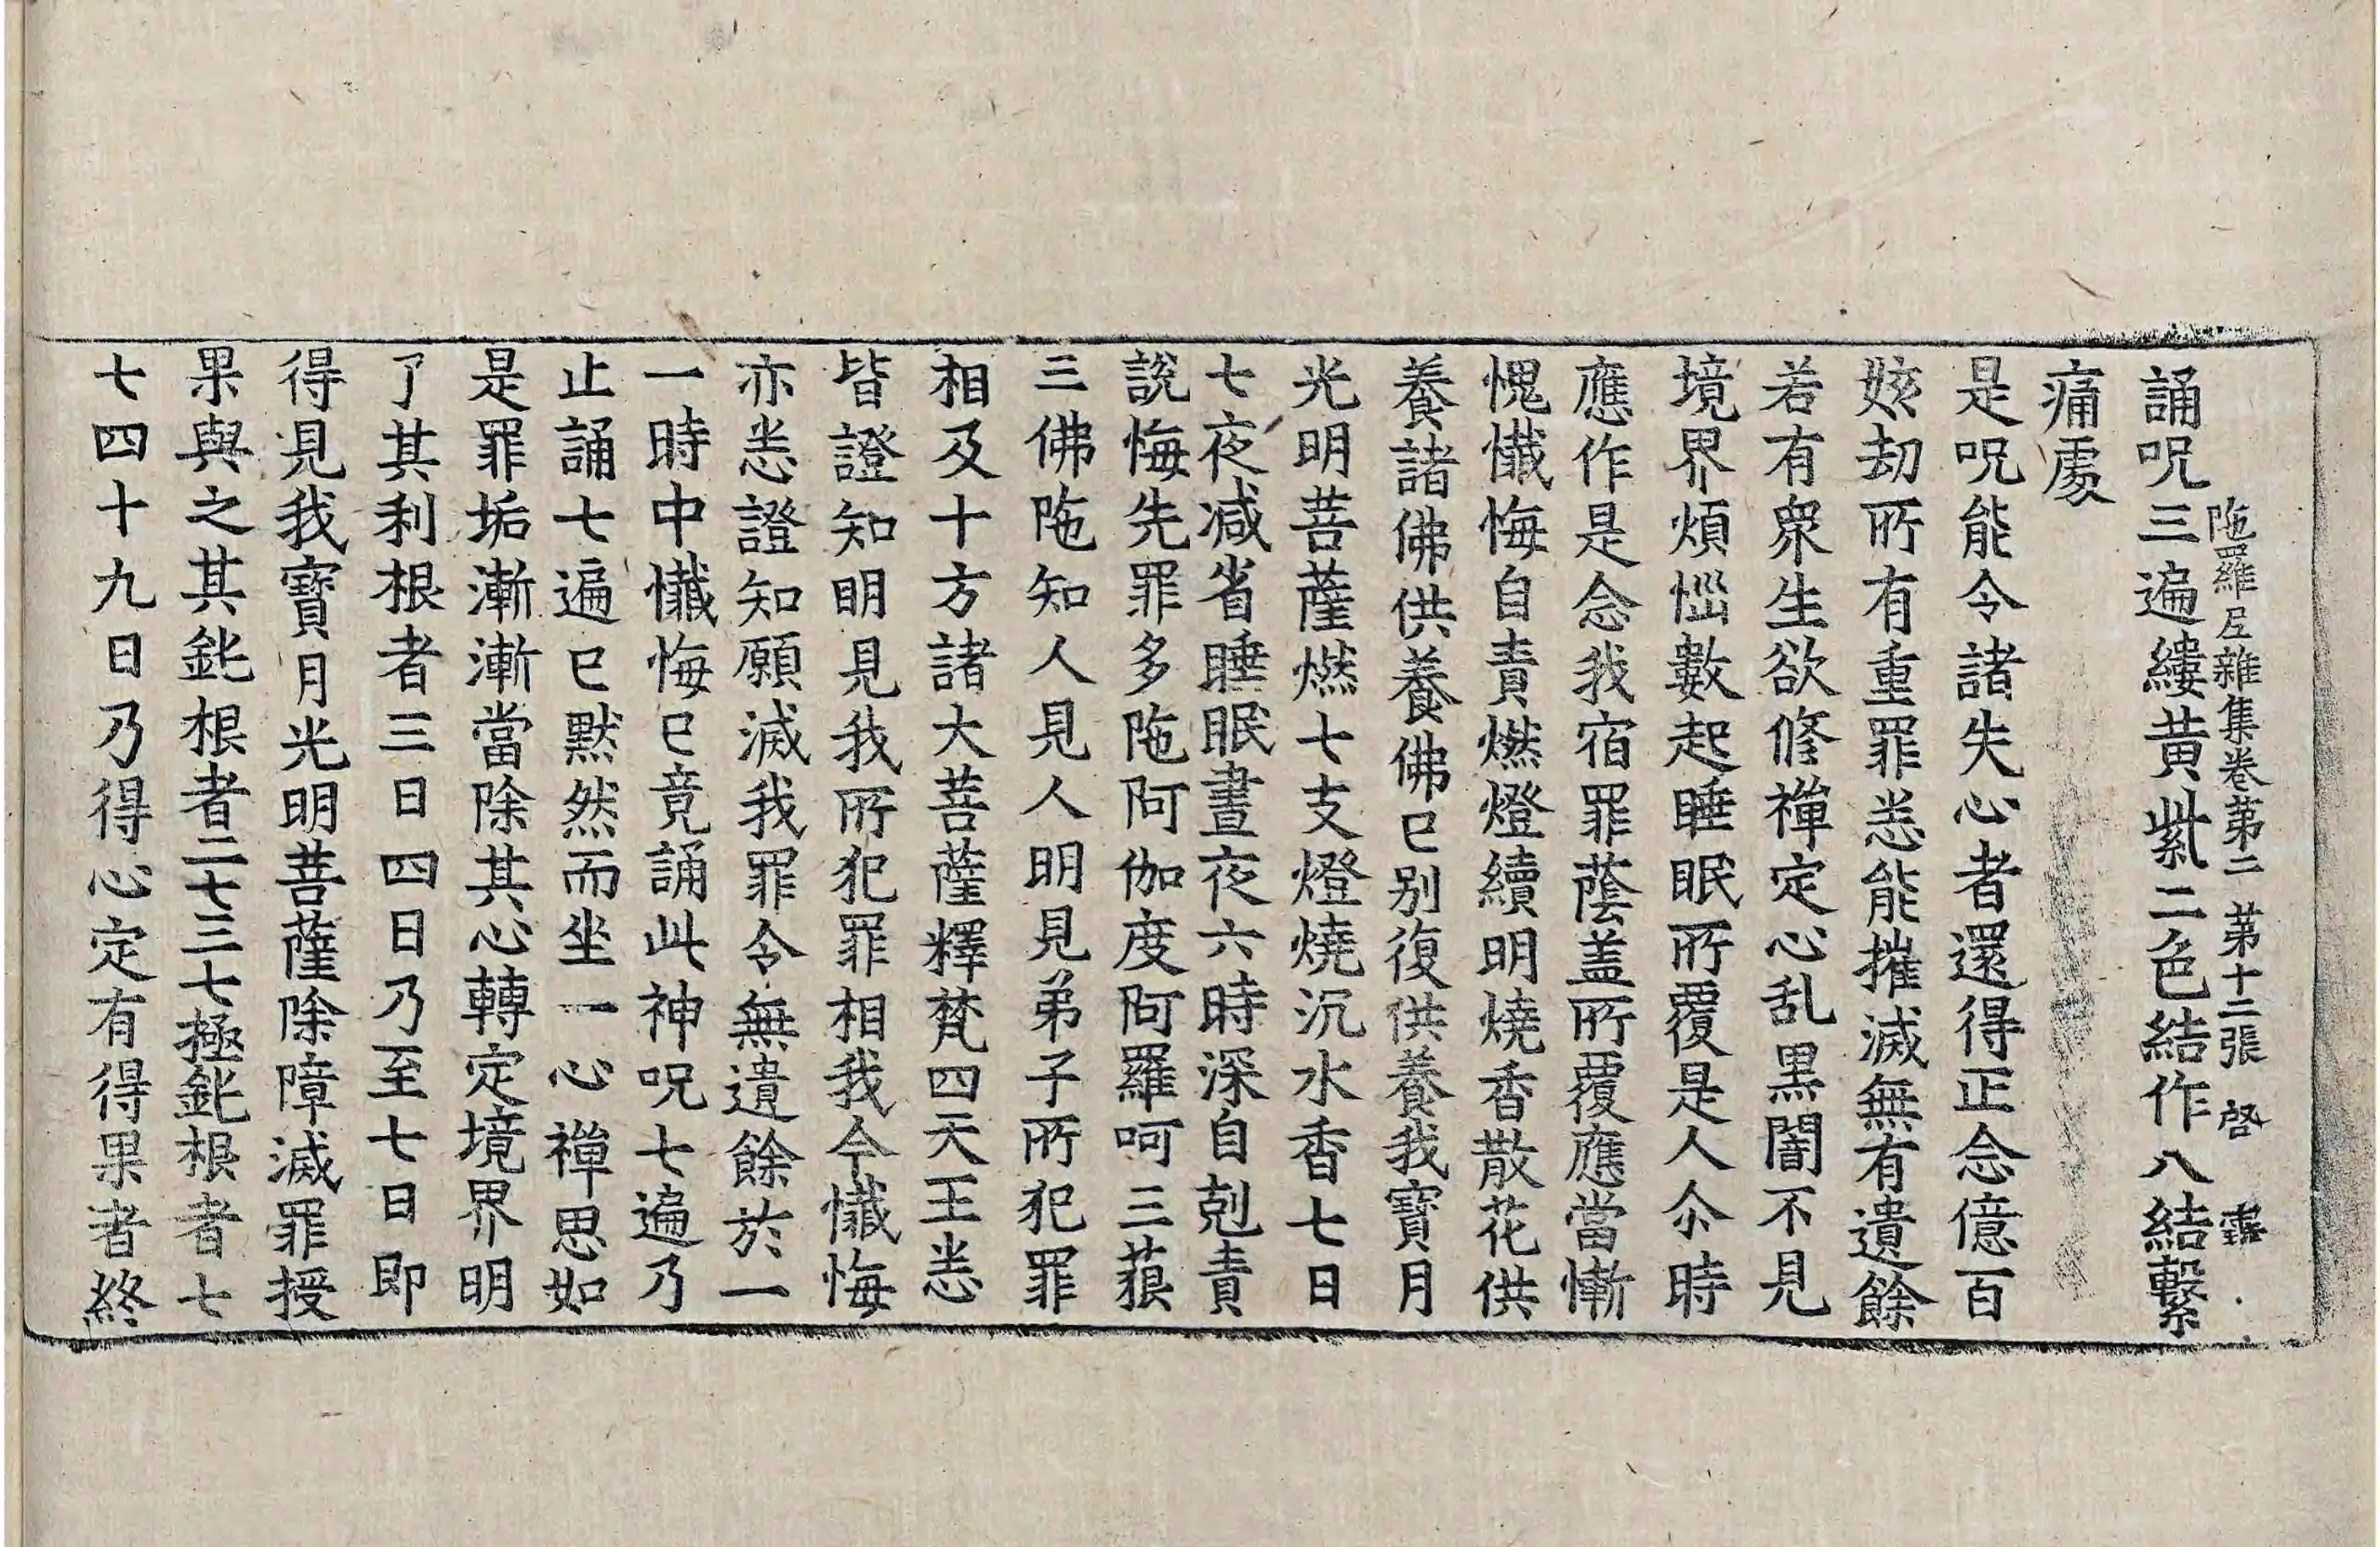 陁羅尼雜集卷第二 第十二張 啓
誦呪三遍縷黃紫二色結作八結繫
痛處
是呪能令諸失心者還得正念億百
姟劫所有重罪悉能摧滅無有遺餘
若有衆生欲修禪定心乱黒闇不見
境界煩惱數起睡眠所覆是人尒時
應作是念我宿罪蔭盖所覆應當慚
愧懺悔自責燃燈續明燒香散花供
養諸佛供養佛已别復供養我寶月
光明菩薩燃七支燈燒沉水香七日
七夜減省睡眠晝夜六時深自剋責
說悔先罪多陁阿伽度阿羅呵三藐
三佛陁知人見人明見弟子所犯罪
相及十方諸大菩薩釋梵四天王悉
皆證知明見我所犯罪相我今懺悔
亦悉證知願滅我罪令無遺餘於一
一時中懺悔已竟誦此神呪七遍乃
止誦七遍已黙然而坐一心禪思如
是罪垢漸漸當除其心轉定境界明
了其利根者三日四日乃至七日即
得見我寶月光明菩薩除障滅罪授
果與之其鈍根者二七三七極鈍根者七
七四十九日乃得心定有得果者終